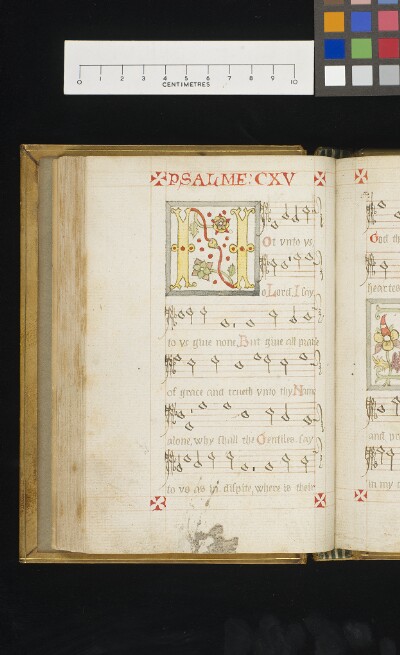 0 1 2 3 4 5 6 7 8 9 10
CENTIMETRES
PSALME: CXV
Not vnto vs
o Lord I say
to vs giue none, But giue all praise
of grace and trueth vnto thy Name
alone, why shall the Gentiles say
to vs as in dispite, where is their
God th
heartes
and pr
in my